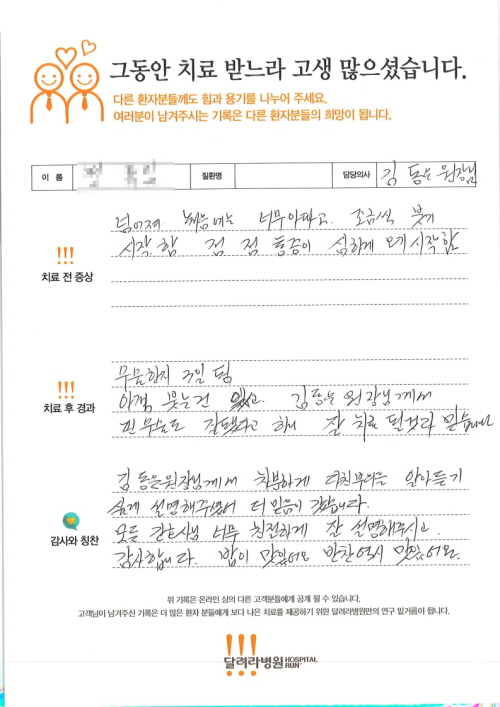 그동안 치료 받느라 고생 많으셨습니다.
다른 환자분들께도 힘과 용기를 나누어 주세요.
여러분이 남겨주시는 기록은 다른 환자분들의 희망이 됩니다.
이 름 질환명 담당의사 김동은 원장님
넘어져 처음에는 너무아파고. 조금씩 붓기
시작함 점점 통증이 심하게 오기 시작함
!!!
치료 전 증상
수술한지 3일 됨
아객 붓는건 있고. 김동은 원장님께서
수술도 잘됐다고 하니 잘 치료 될것라 믿습니다
!!!
치료 후 경과
김동은원장님께서 차분하게 다친부위를 알아듣기
쉽게 설명해주셔서 더 믿음이 갔습니다.
모든 간호사님 너무 친절하게 잘 설명해주시고
감사합니다. 밥이 맛있어요 반찬역시 맛있어요.
감사와 칭찬
위 기록은 온라인 상의 다른 고객분들에게 공개 될 수 있습니다.
고객님이 남겨주신 기록은 더 많은 환자 분들에게 보다 나은 치료를 제공하기 위한 달려라병원만의 연구 밑거름이 됩니다.
!!!
달려라병원 HOSPITAL RUN